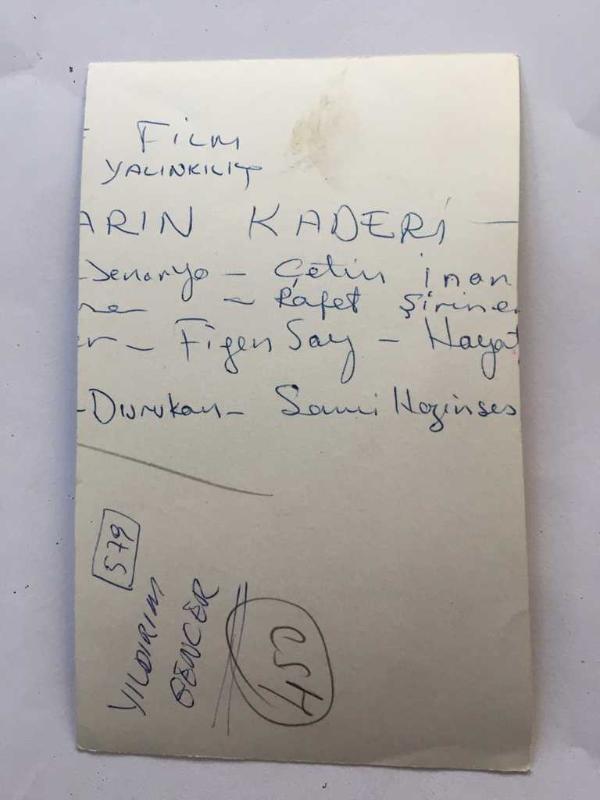 FİLM
YALINKILIÇ
ARIN KADERİ -
Senaryo - Çetin İnan
- Rafet Şirine
er - Figen Say - Hayat
- Durukan - Sami Hazinses
579
YILDIRIM
GENCER
450